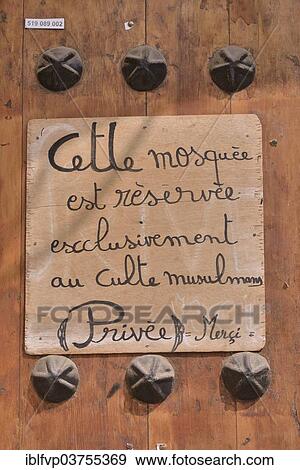 519 089 002
Cette mosquée
est rèservèe
exclusivement
au culte musulmans
(Privèe) = Merçi =
FOTOSEARCH
iblfvp03755369 www.fotosearch.com